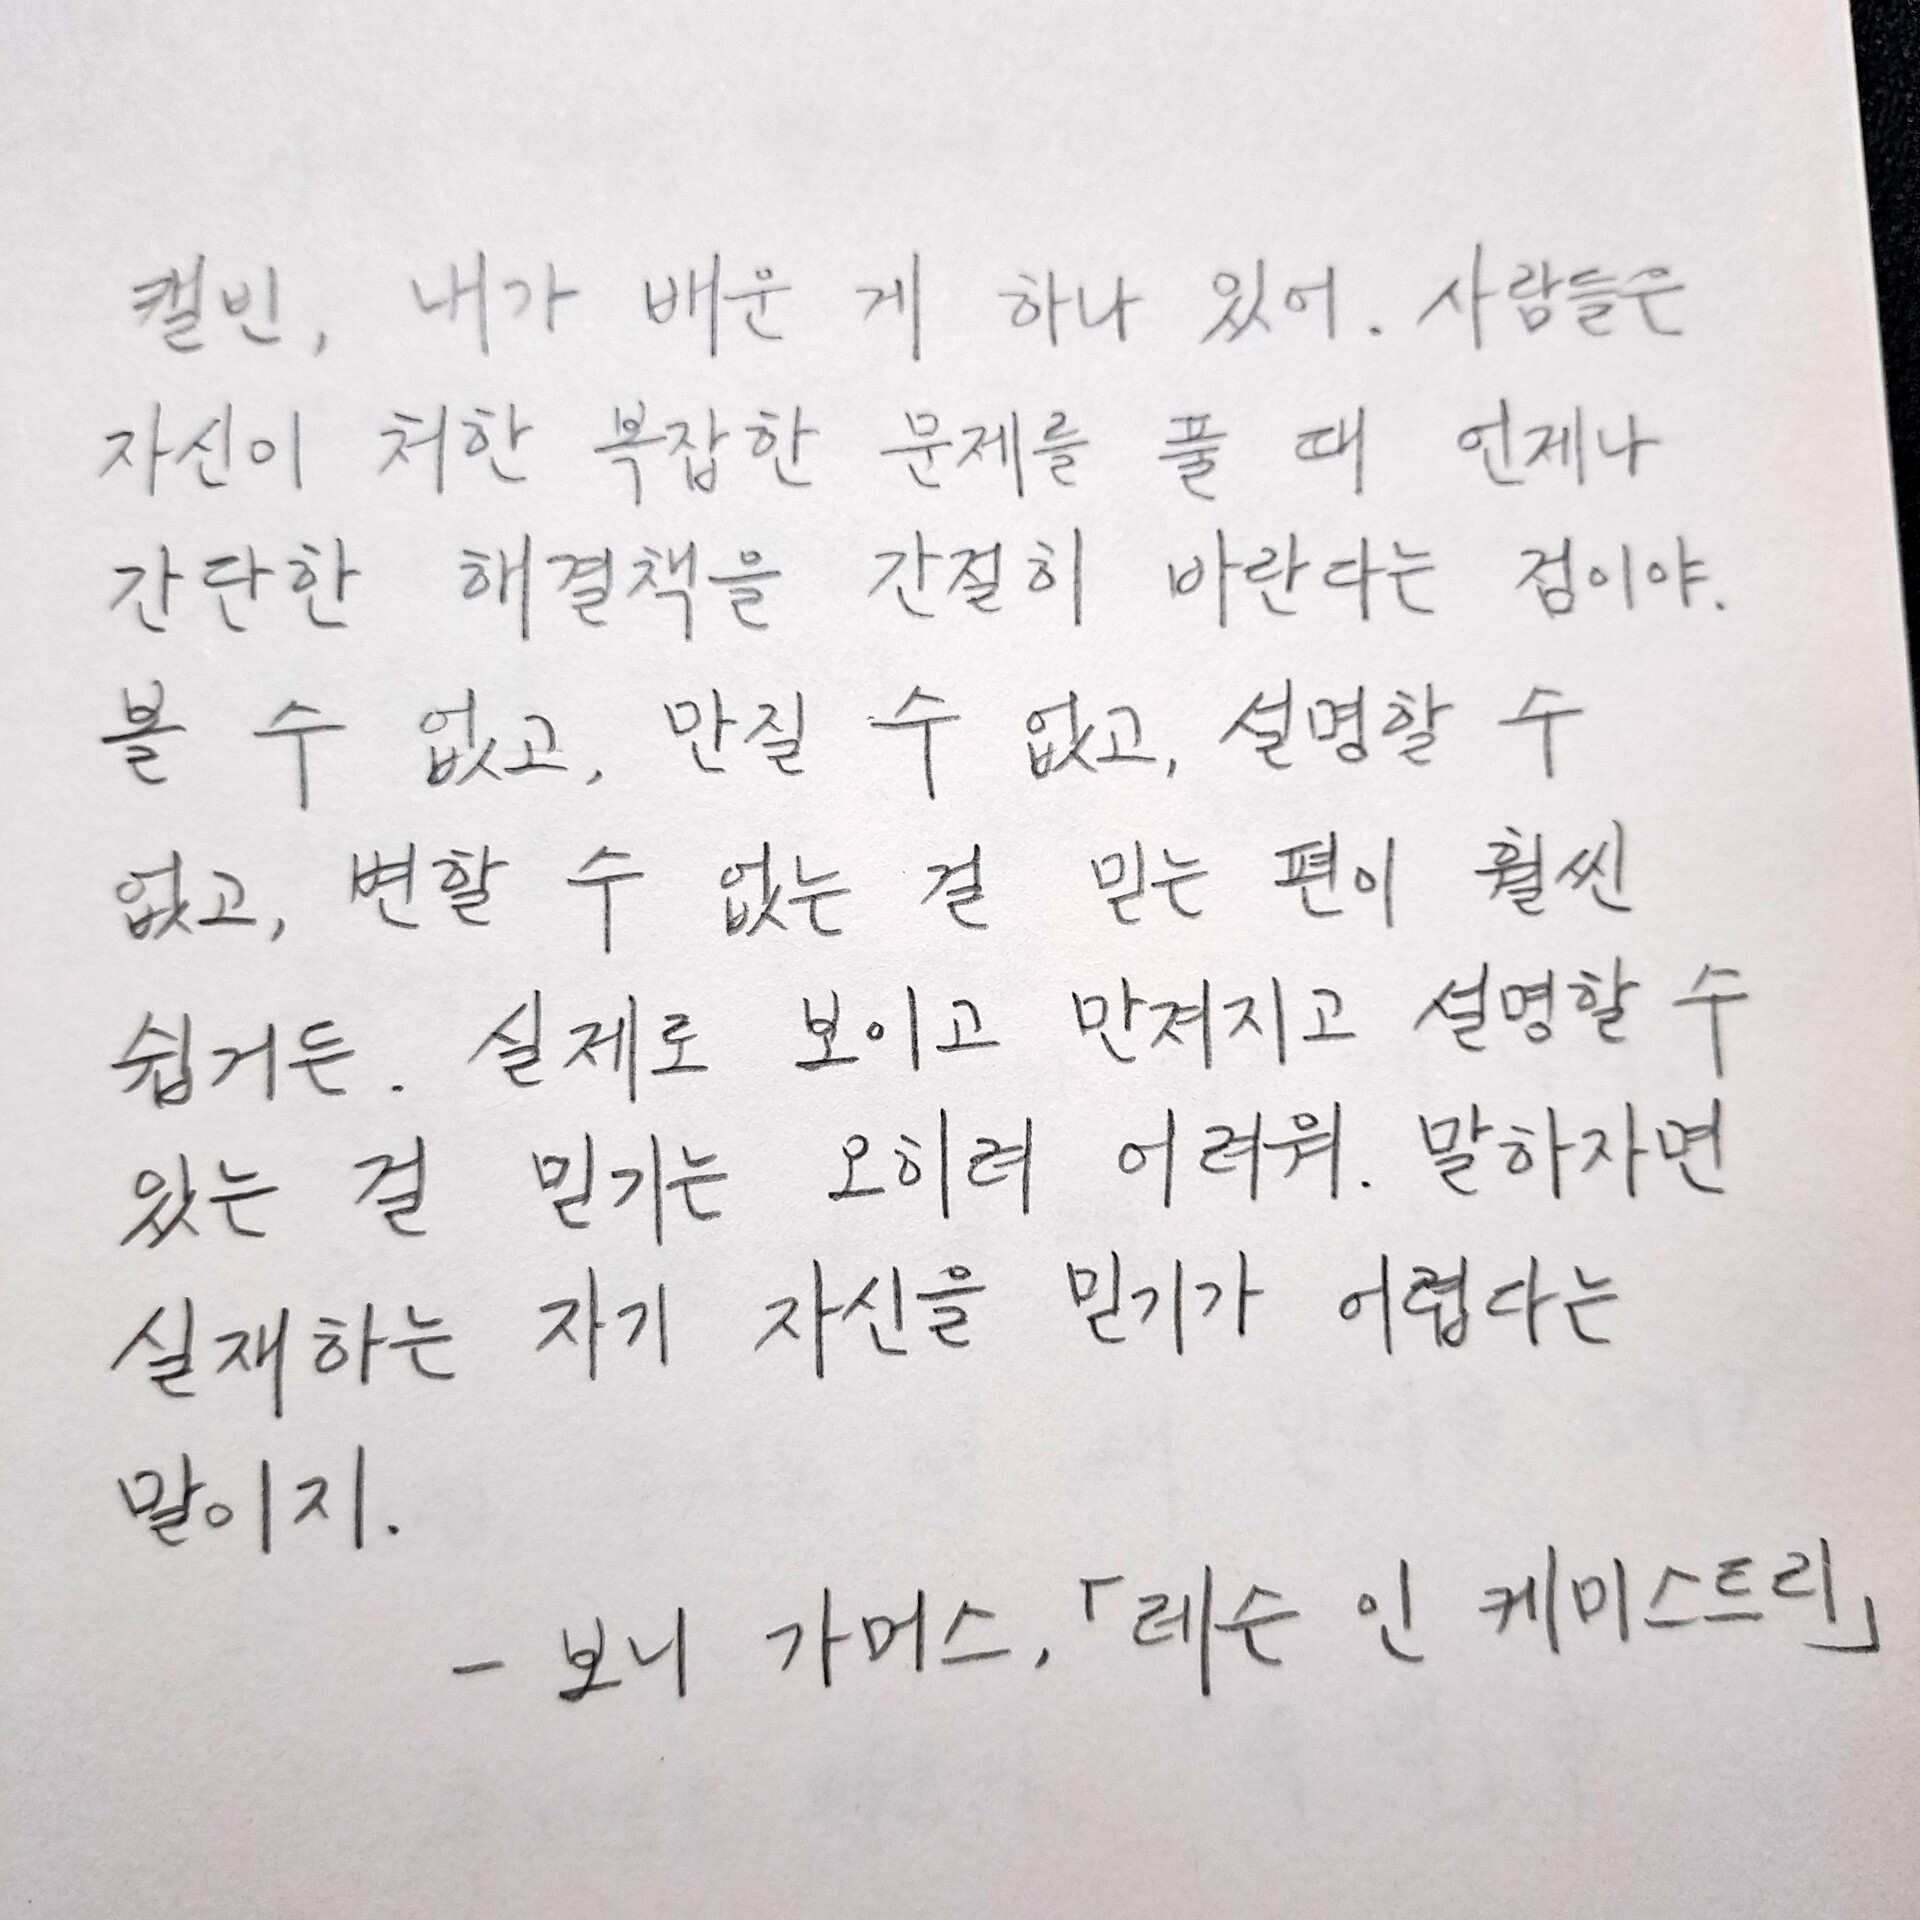 캘빈, 내가 배운 게 하나 있어. 사람들은
자신이 처한 복잡한 문제를 풀 때 언제나
간단한 해결책을 간절히 바란다는 점이야.
볼 수 없고, 만질 수 없고, 설명할 수
없고, 변할 수 없는 걸 믿는 편이 훨씬
쉽거든. 실제로 보이고 만져지고 설명할 수
있는 걸 믿기는 오히려 어려워. 말하자면
실재하는 자기 자신을 믿기가 어렵다는
말이지.
- 보니 가머스, 「레슨 인 케미스트리」